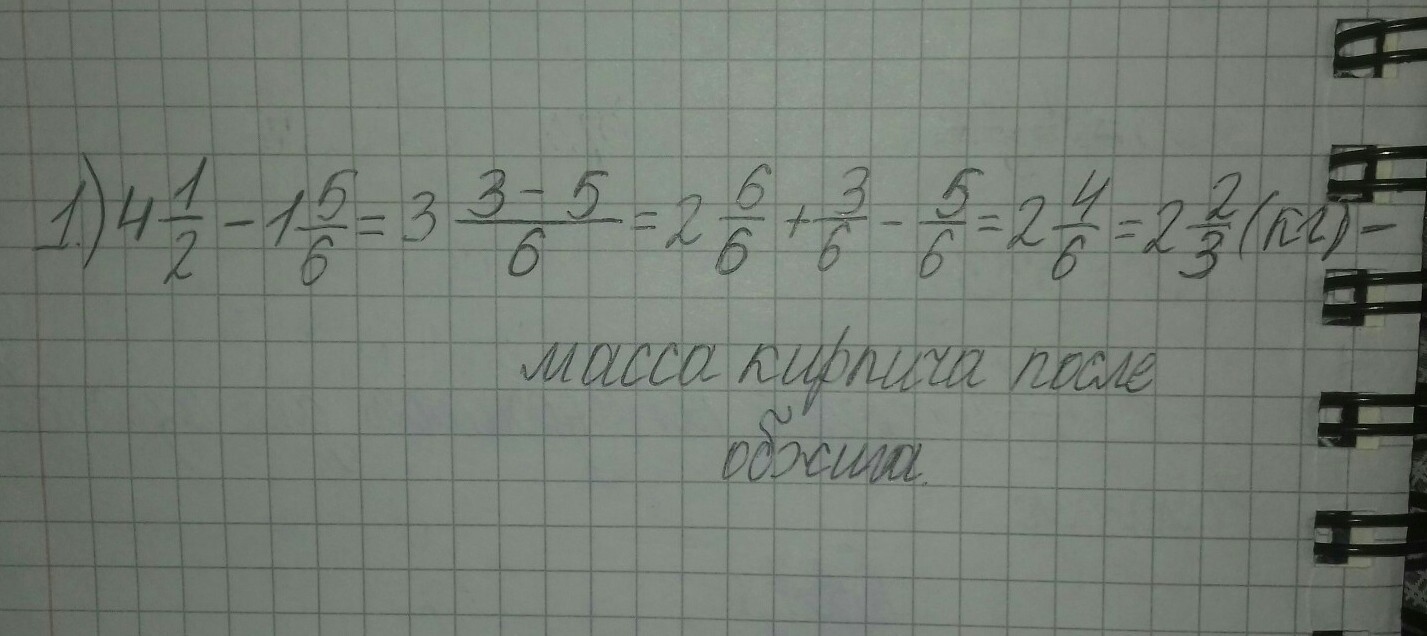 1.) 4 1/2 - 1 5/6 = 3 (3 - 5)/6 = 2 6/6 + 3/6 - 5/6 = 2 4/6 = 2 2/3 (кг) -
масса кирпича после
обжига.